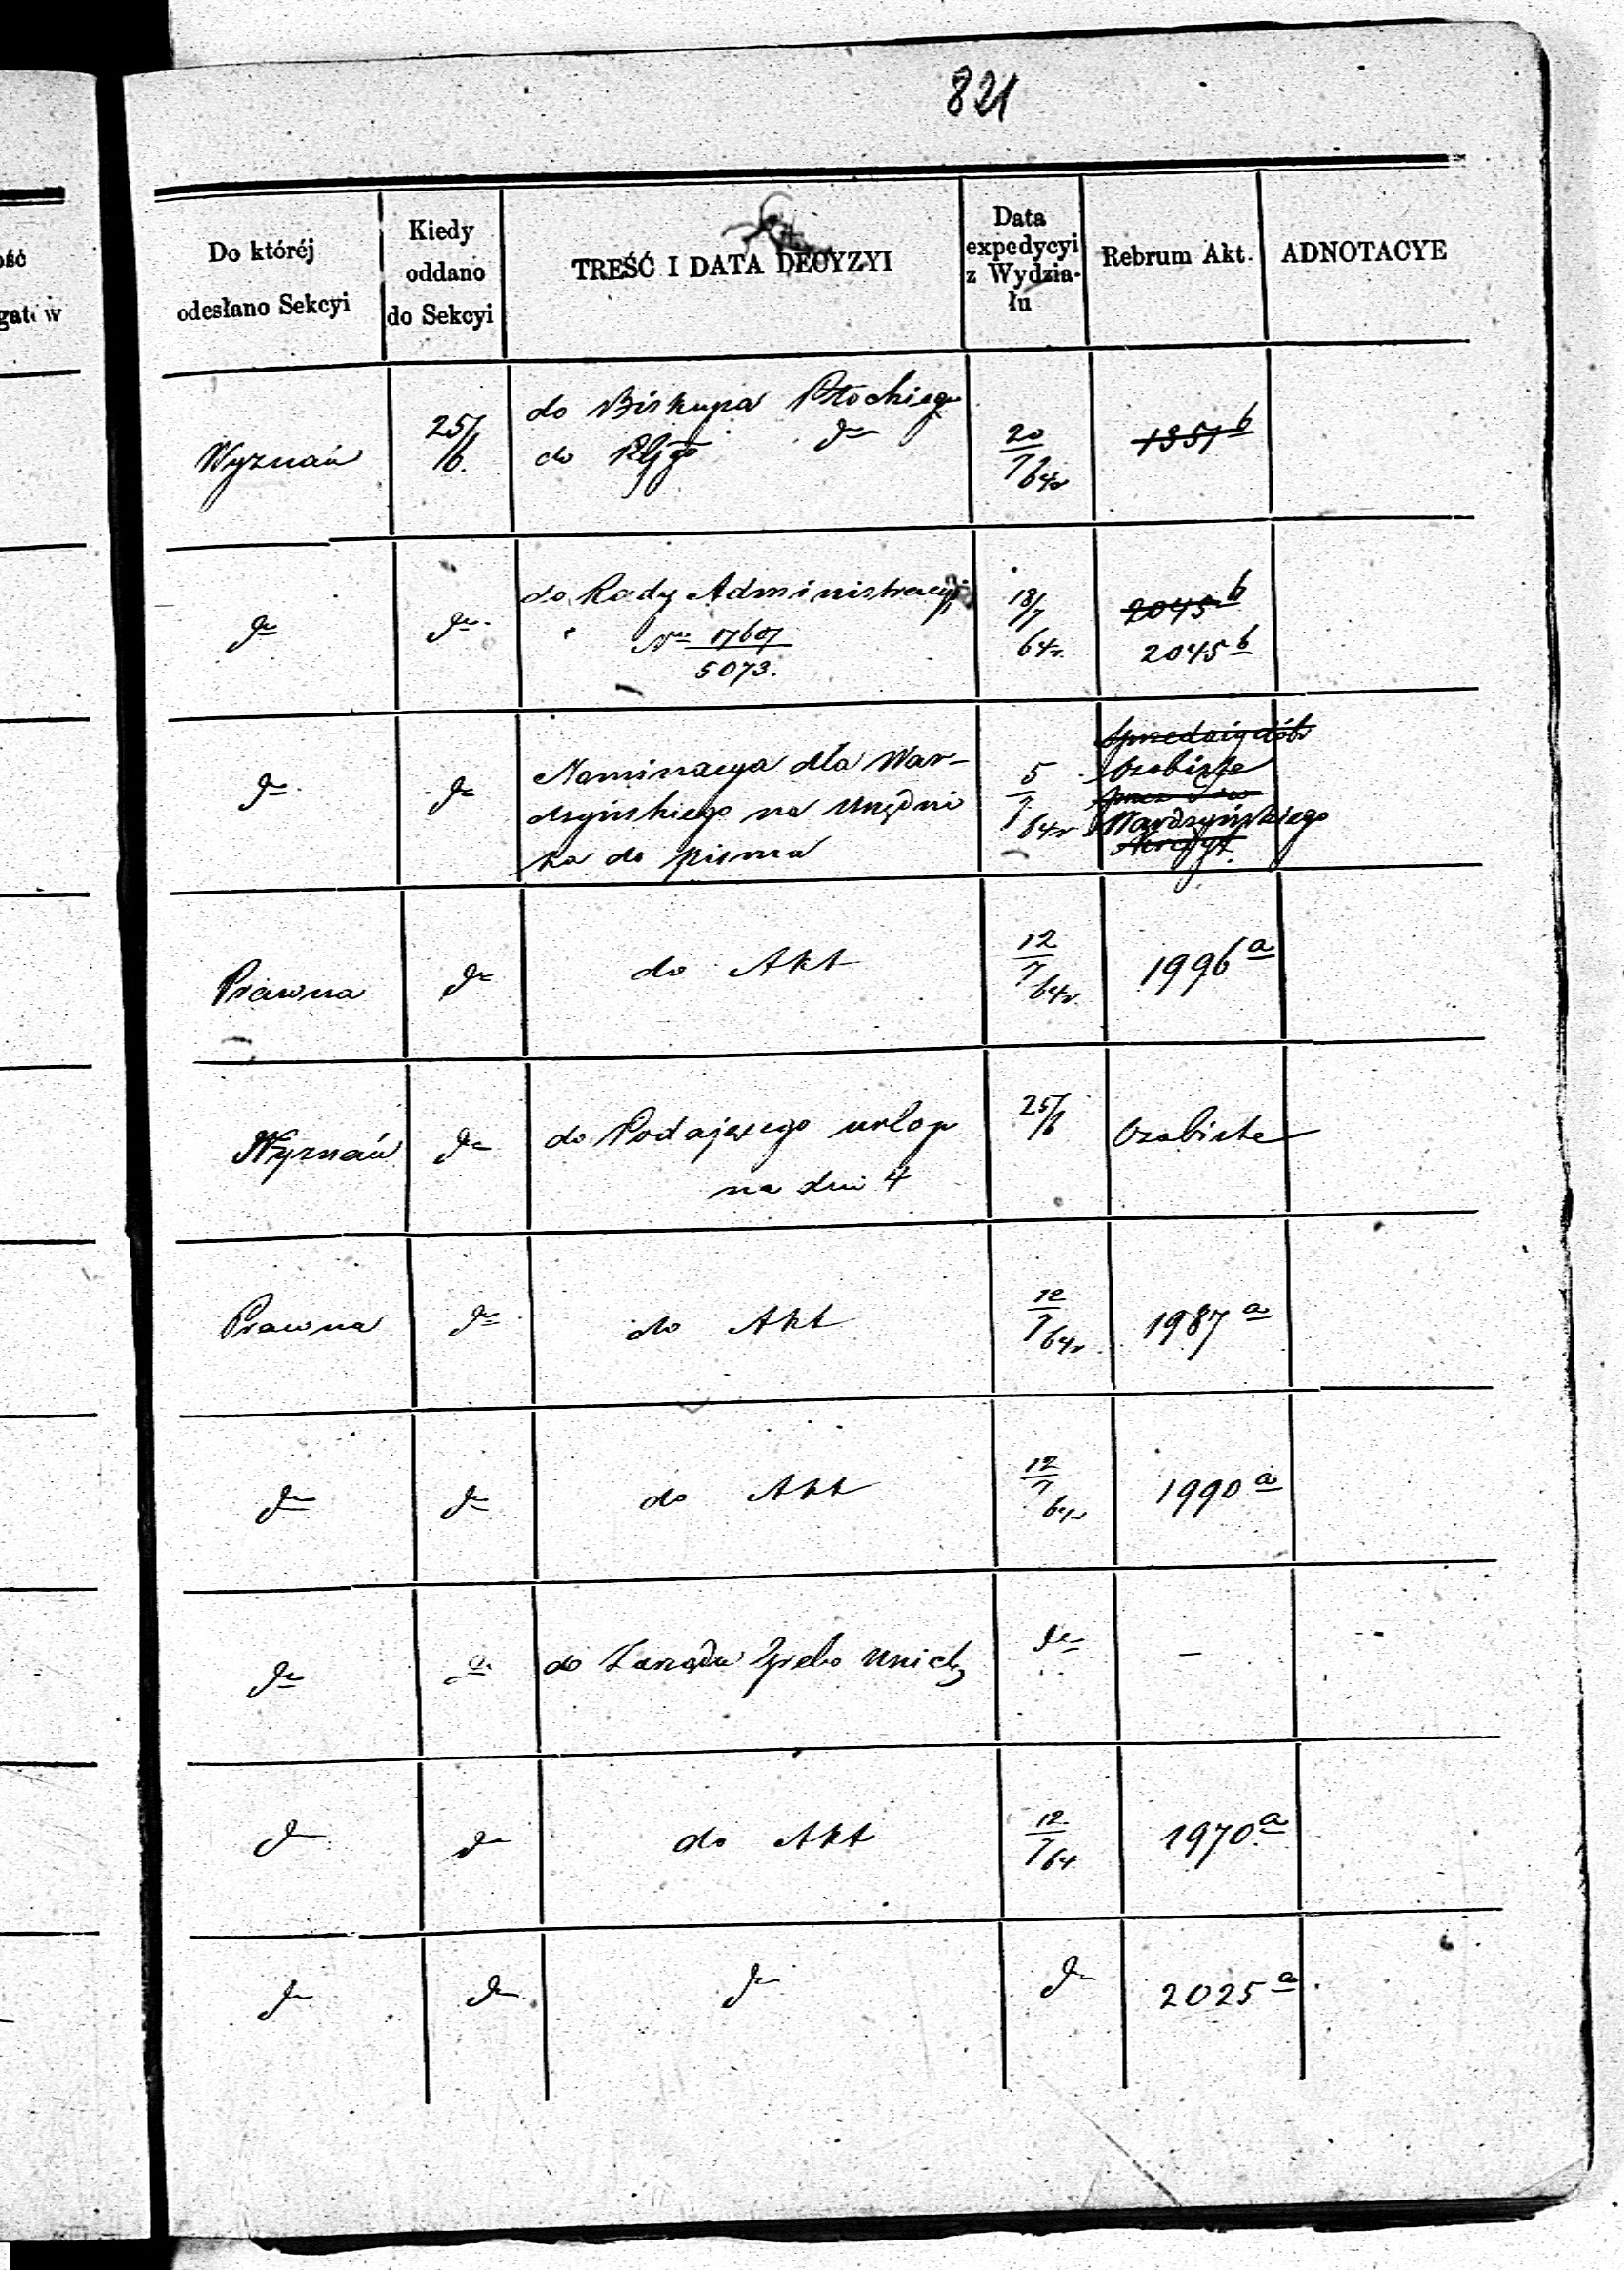 821
ość
gatów
Do któréj
odesłano Sekcyi
Kiedy
oddano
do Sekcyi
TREŚĆ I DATA DECYZYI
Data
expedycyi
z Wydzia-
łu
Rebrum Akt.
ADNOTACYE
Wyznań
25/6.
do Biskupa Płockiego
do Rządu Gub. do
20/7 64r
1351 b
do
do
do Rady Administracyj
Nro 17607
5073.
18/7
64r.
2045 b
2045 b
do
do
Nominacya dla War-
dzyńskiego na Urzędni
ka do pisma
5/7 64r
Sprzedaży dóbr
Osobiste
Wardzyńskiego
Prawna
do
do Akt
12/7 64r.
1996 a
Wyznań
do
do Podającego urlop
na dni 4
25/6
Osobiste
Prawna
do
do Akt
12/7 64r
1987 a
do
do
do Akt
12/7 64r
1990 a
do
do
do Zarządu Greko Unick
do
–
do
do
do Akt
12/7 64
1970 a
do
do
do
do
2025 a